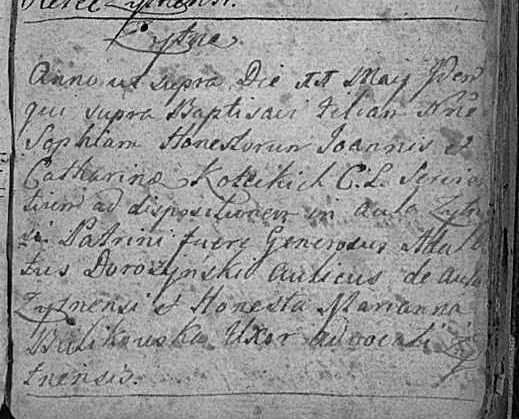 Zytnensi.
Zytne.
Anno ut supra Die 11 Maij Idem
qui supra Baptisavi Filiam Nne
Sophiam Honestorum Joannis et
Catharinæ Koteckich C. L. Servien
tium ad dispositionem in aula Zytn
si. Patrini fuere Generosus Adal
tus Dorozyński Aulicus de Aula
Zytnensi et Honesta Marianna
Bulikowska Uxor advocati Zy
tnensis.